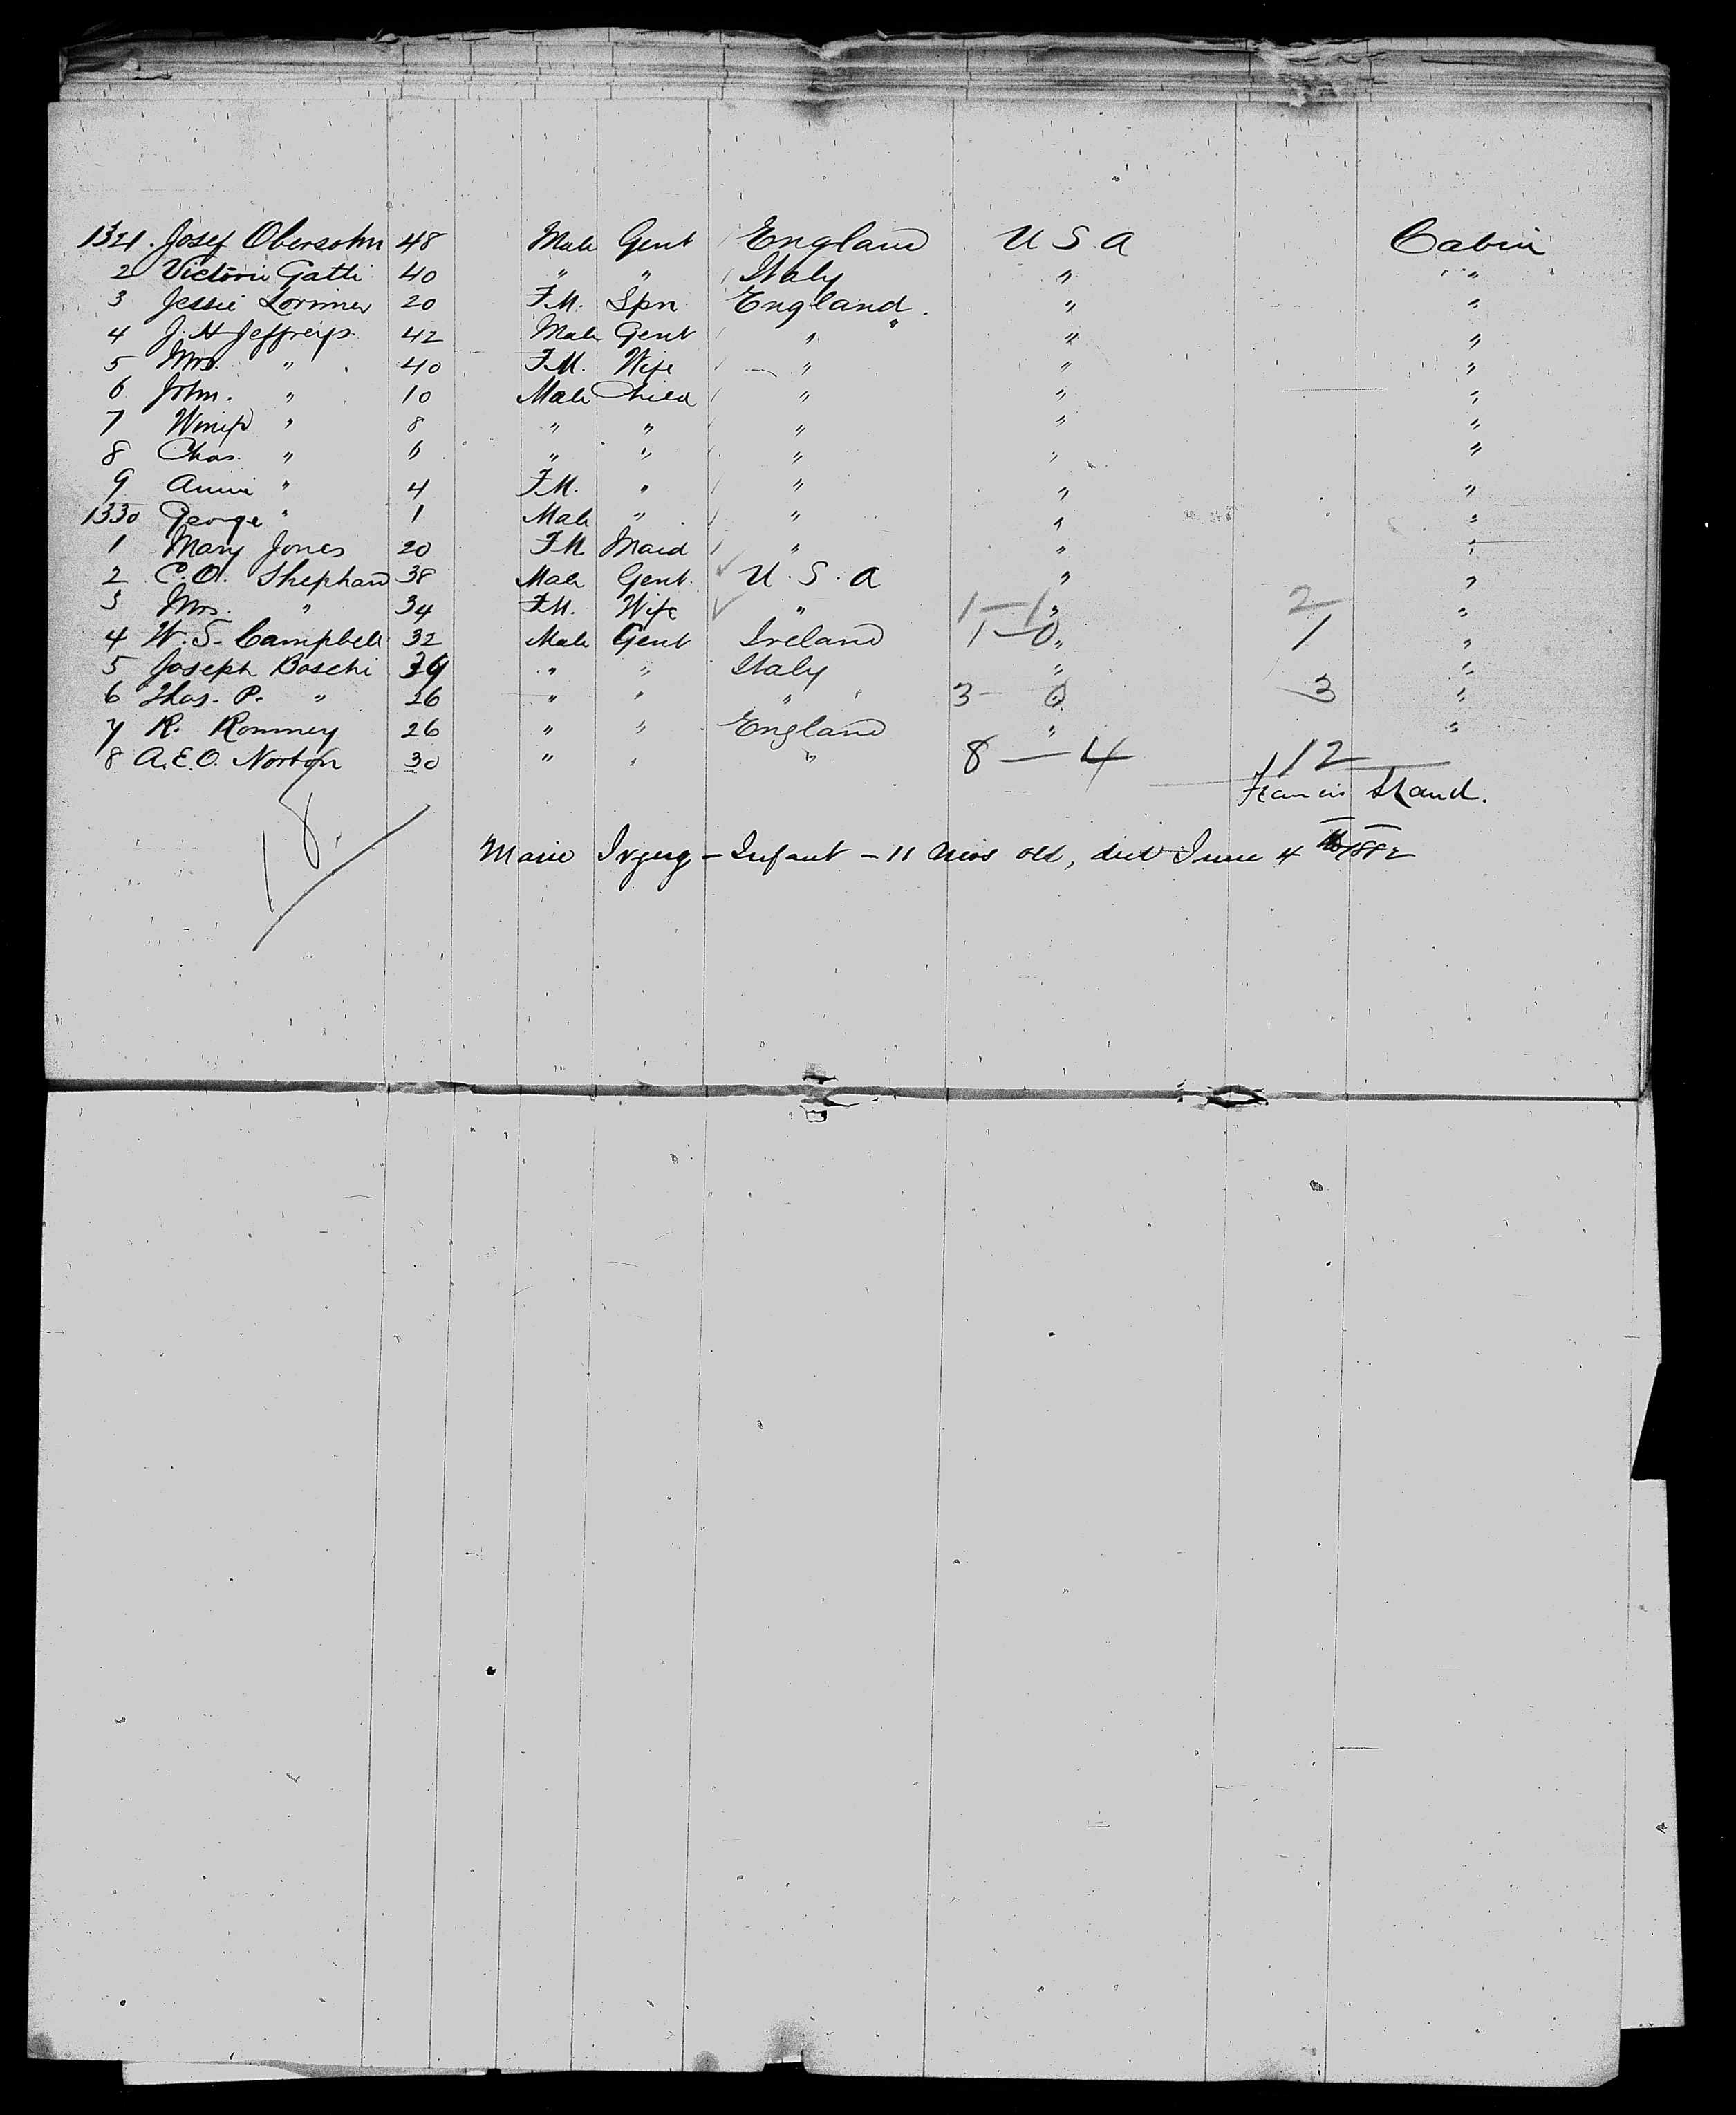 1321. Josef Obersohn 48 Male Gent England U S A Cabin
2 Victoria Gatti 40 " " Italy " "
3 Jessie Lorimer 20 F.M. Spn England. " "
4 J. H Jeffreys 42 Male Gent " " "
5 Mrs. " 40 F.M. Wife " " "
6 John. " 10 Male Child " " "
7 " 8 " " " " "
8 Chas. " " " " " "
9 Annie " 4 F.M. " " " "
1330 George " 1 Male " " " "
1 Mary Jones 20 F.M Maid " " "
2 C.O. Shephard 38 Male Gent. U. S. A " "
3 Mrs. " 34 F.M. Wife " 1–1 " 2 "
4 W. S. Campbell 32 Male Gent Ireland 1–0 " 1 "
5 Joseph Boschi 39 " " Italy " "
6 Thos. P. " 26 " " " 3– 0 3 "
7 R. Romney 26 " " England " "
8 A.E.O. Norton 30 " " " 8–4 12
Francis Stand.
18.
Marie – Infant – 11 Mos old, died June 4 1882